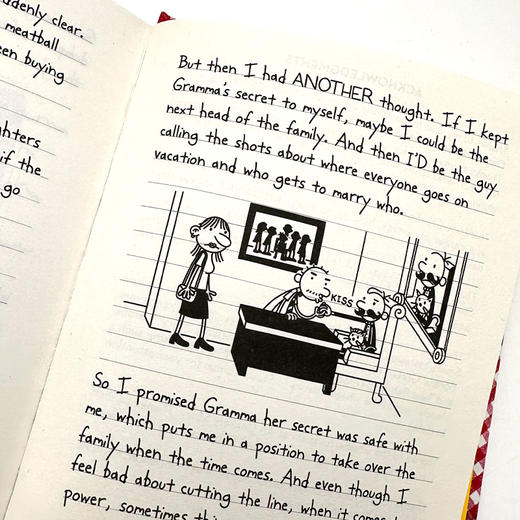 ddenly clear.
meatball
een buying
ghters
if the
go
But then I had ANOTHER thought. If I kept
Gramma's secret to myself, maybe I could be the
next head of the family. And then I'D be the guy
calling the shots about where everyone goes on
vacation and who gets to marry who.
KISS
So I promised Gramma her secret was safe with
me, which puts me in a position to take over the
family when the time comes. And even though I
feel bad about cutting the line, when it comes
power, sometimes